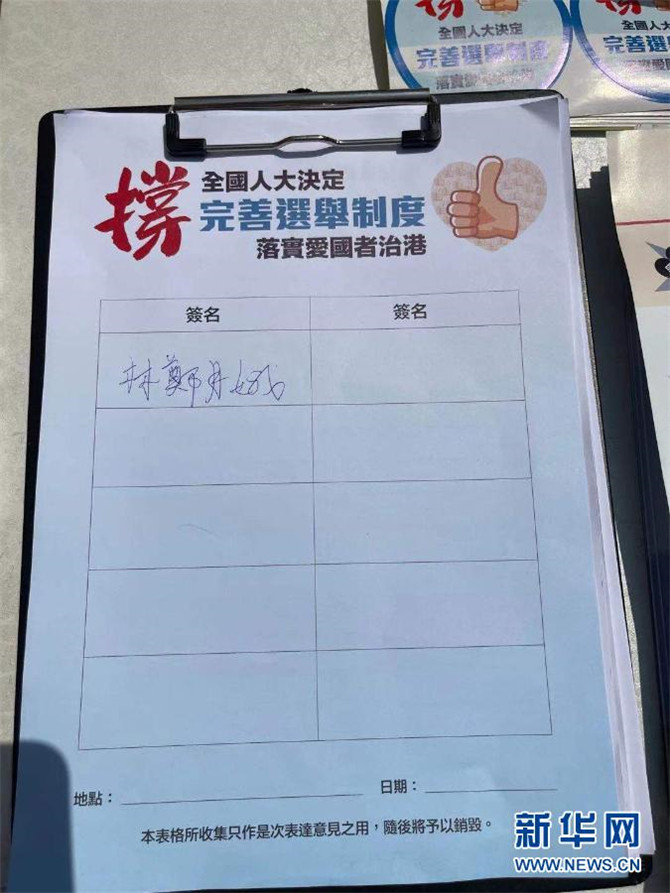 撐
全國人大決定
完善選舉制度
落實愛國者治港
撐
全國人大決定
完善選舉制度
落實愛國者治港
簽名 簽名
林鄭月娥
地點： 日期：
本表格所收集只作是次表達意見之用，隨後將予以銷毀。
新华网
WWW.NEWS.CN